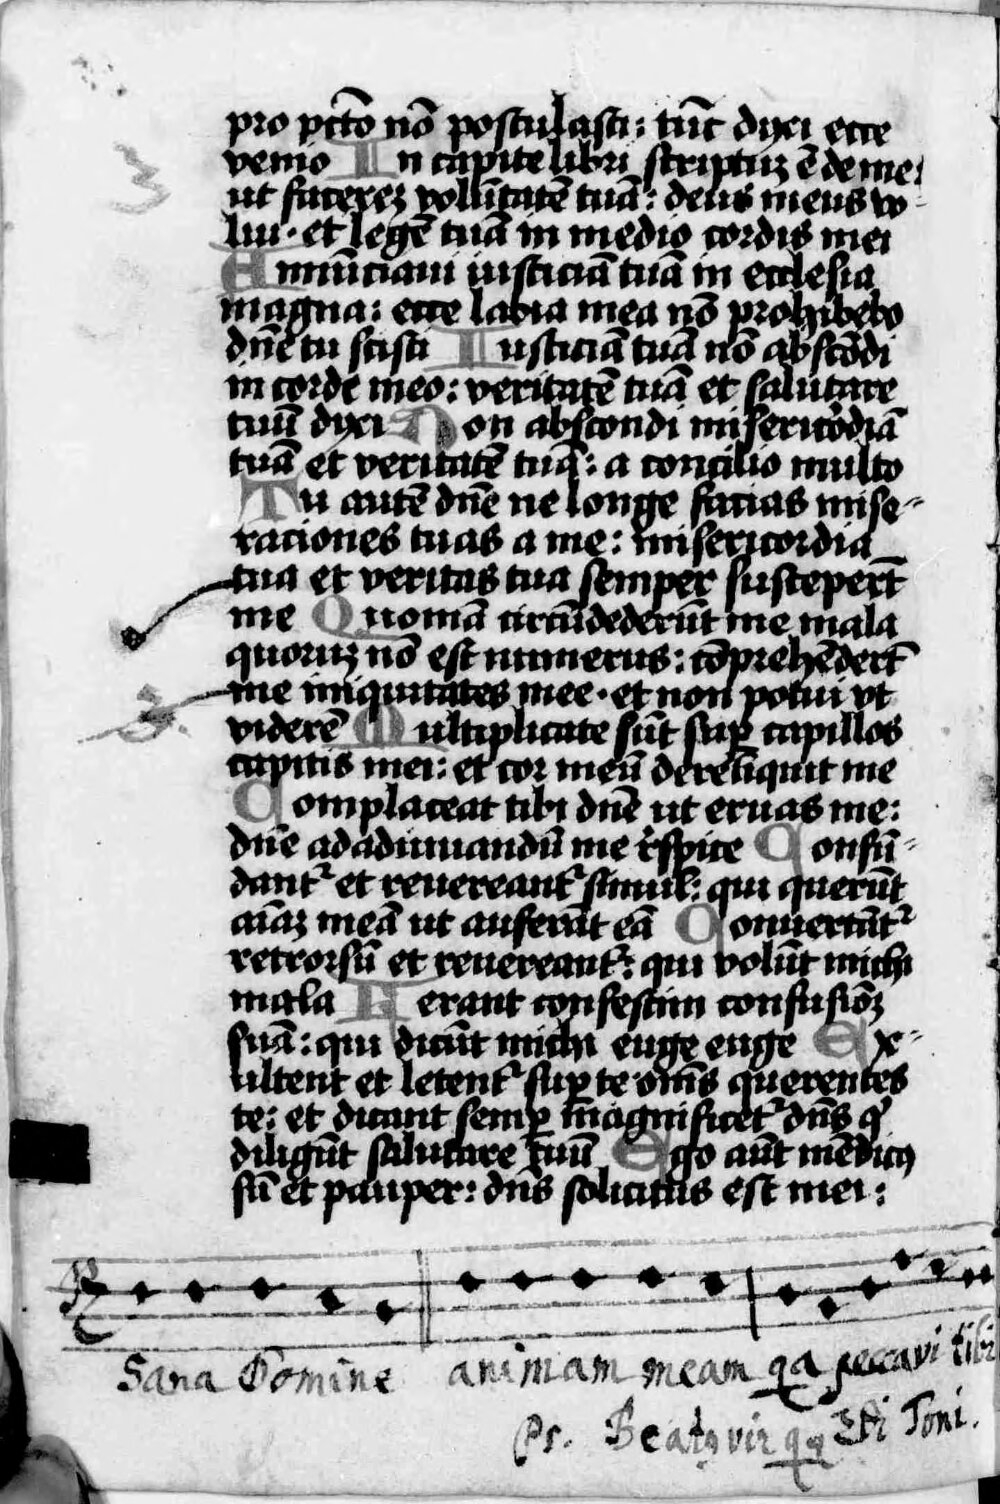 pro pctō nō postulasti: tūc dyxi ecce
venio In capite libri scriptuꝫ ē de me:
ut facereꝫ volūtatē tuā: deus meus vo-
lui· et legē tuā in medio cordis mei
Annūciaui iusticiā tuā in ecclesia
magna: ecce labia mea nō prohibebo
dn̄e tu scisti Iusticiā tuā nō abscōdi
in corde meo: veritatē tuā et salutare
tuū dyxi Non abscondi misericōdiā
tuā et veritatē tuā: a concilio multo
Tu autē dn̄e ne longe facias mise-
raciones tuas a me: misericordia
tua et veritas tua semper suscepert̄
me Quoniā circūdederūt me mala
quoruꝫ nō est numerus: cōprehēdert̄
me iniquitates mee· et non potui vt
viderē Multiplicate sūt suꝑ capillos
capitis mei: et cor meū dereliquit me
Complaceat tibi dn̄e ut eruas me:
dn̄e ad adiuuandū me rͥspice Confū-
dantͬ et reuereantͬ simul: qui querūt
aīaꝫ meā ut auferāt eā Conuertātͬ
retrorsū et reuereantͬ: qui volūt michi
mala Ferant confestim confusiōꝫ
suā: qui dicūt michi euge euge Ex-
ultent et letentͬ suꝑ te om̄s querentes
te: et dicant semꝑ magnificetͬ dn̄s qͥ
diligūt salutare tuū Ego aūt mēdicꝰ
sū et pauper: dn̄s solicitus est mei:
Sana Domine animam meam qa peccavi tibi
Ps. Beatꝰ vir qꝗ 2di Toni.